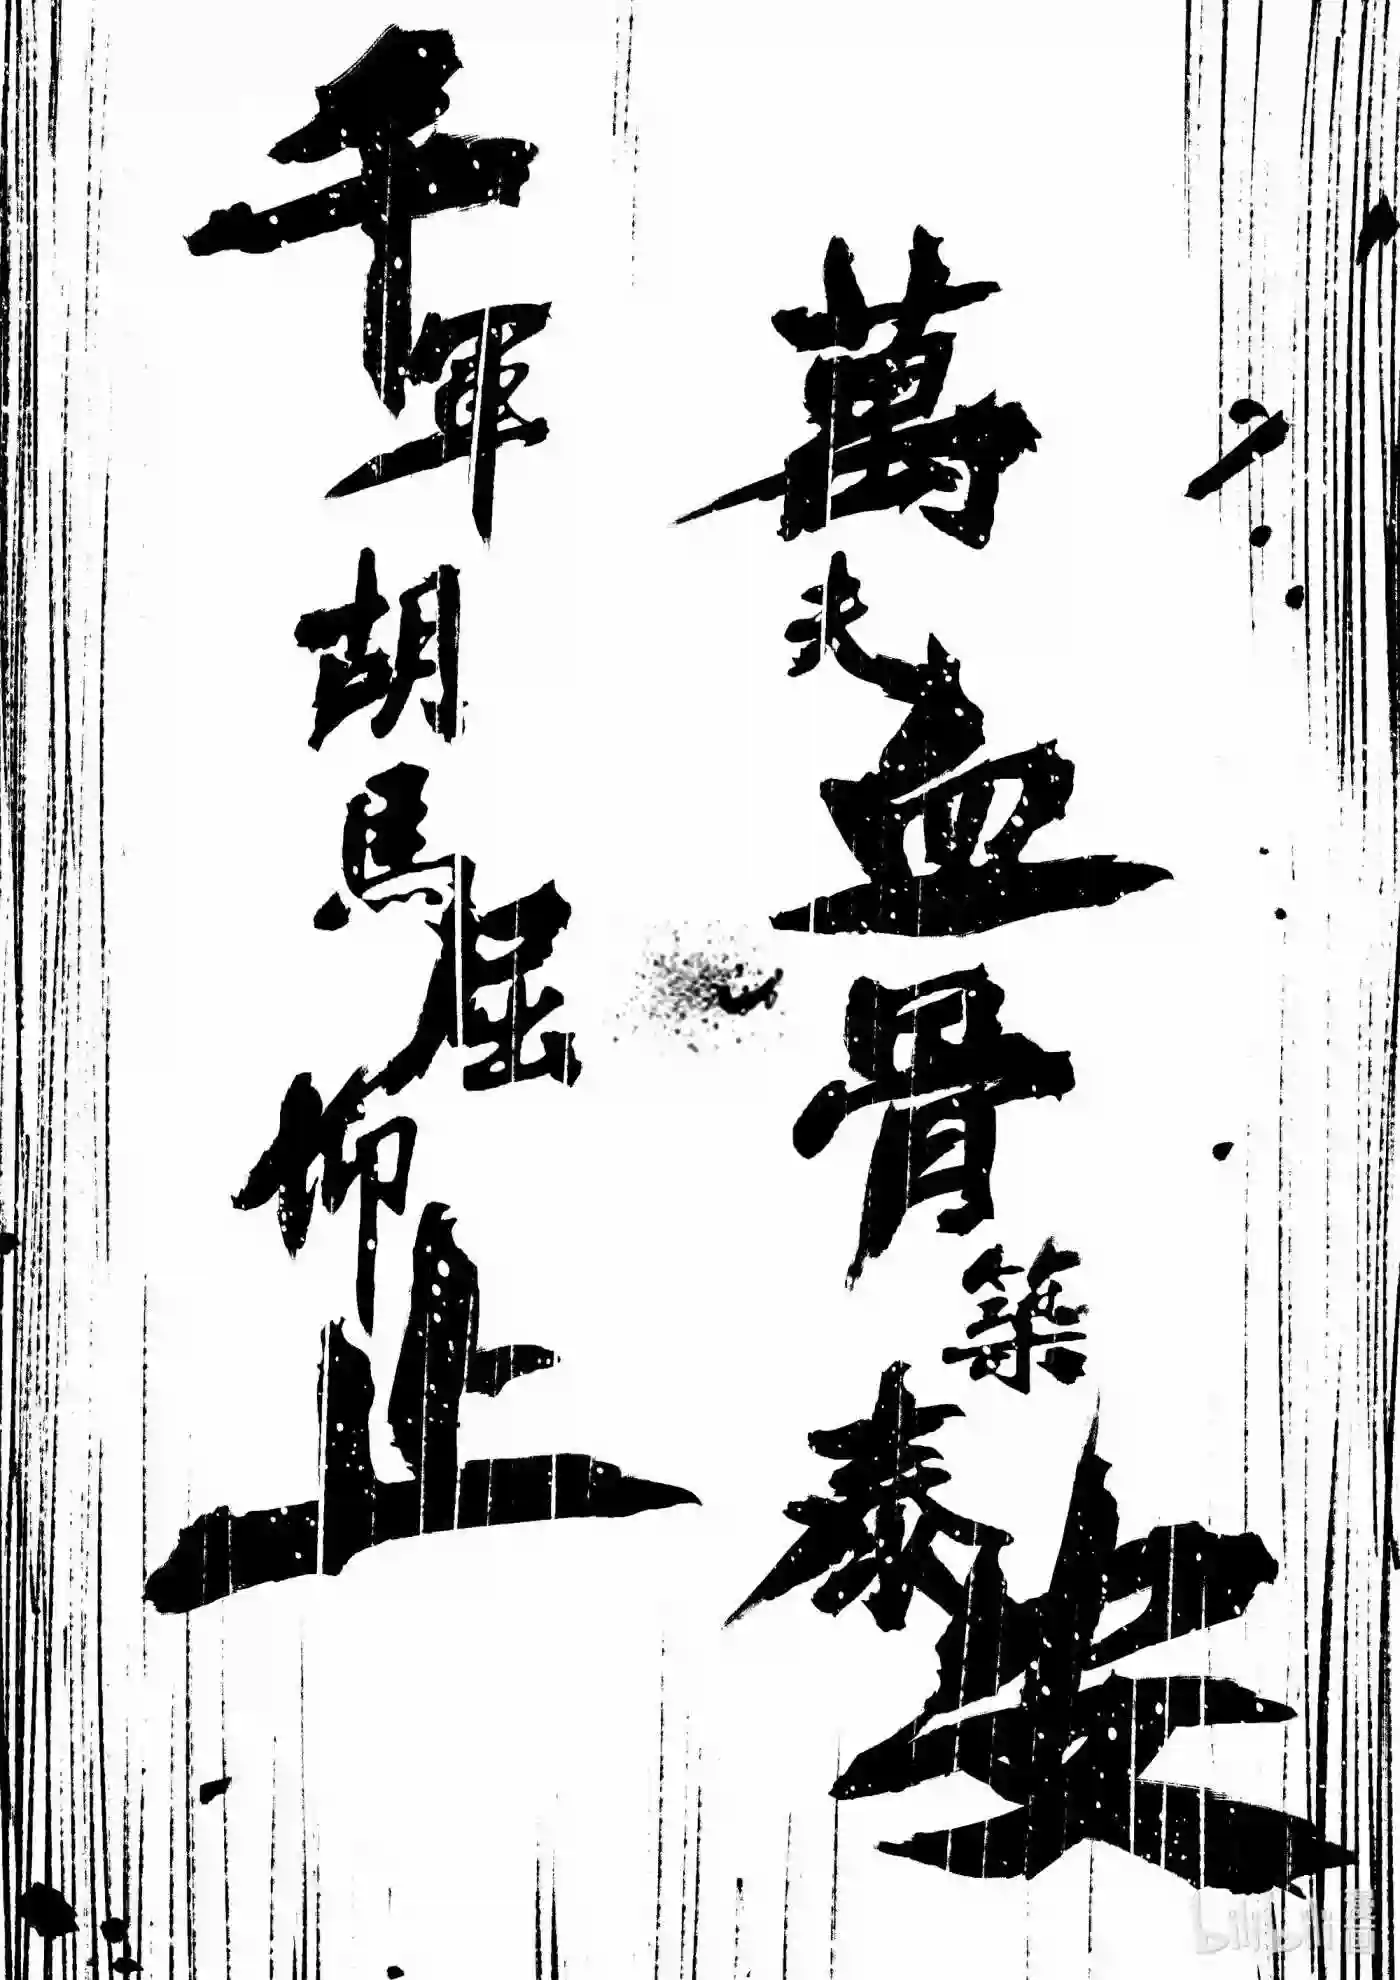 萬夫血骨築泰安
千軍胡馬屈仰止
bilibili